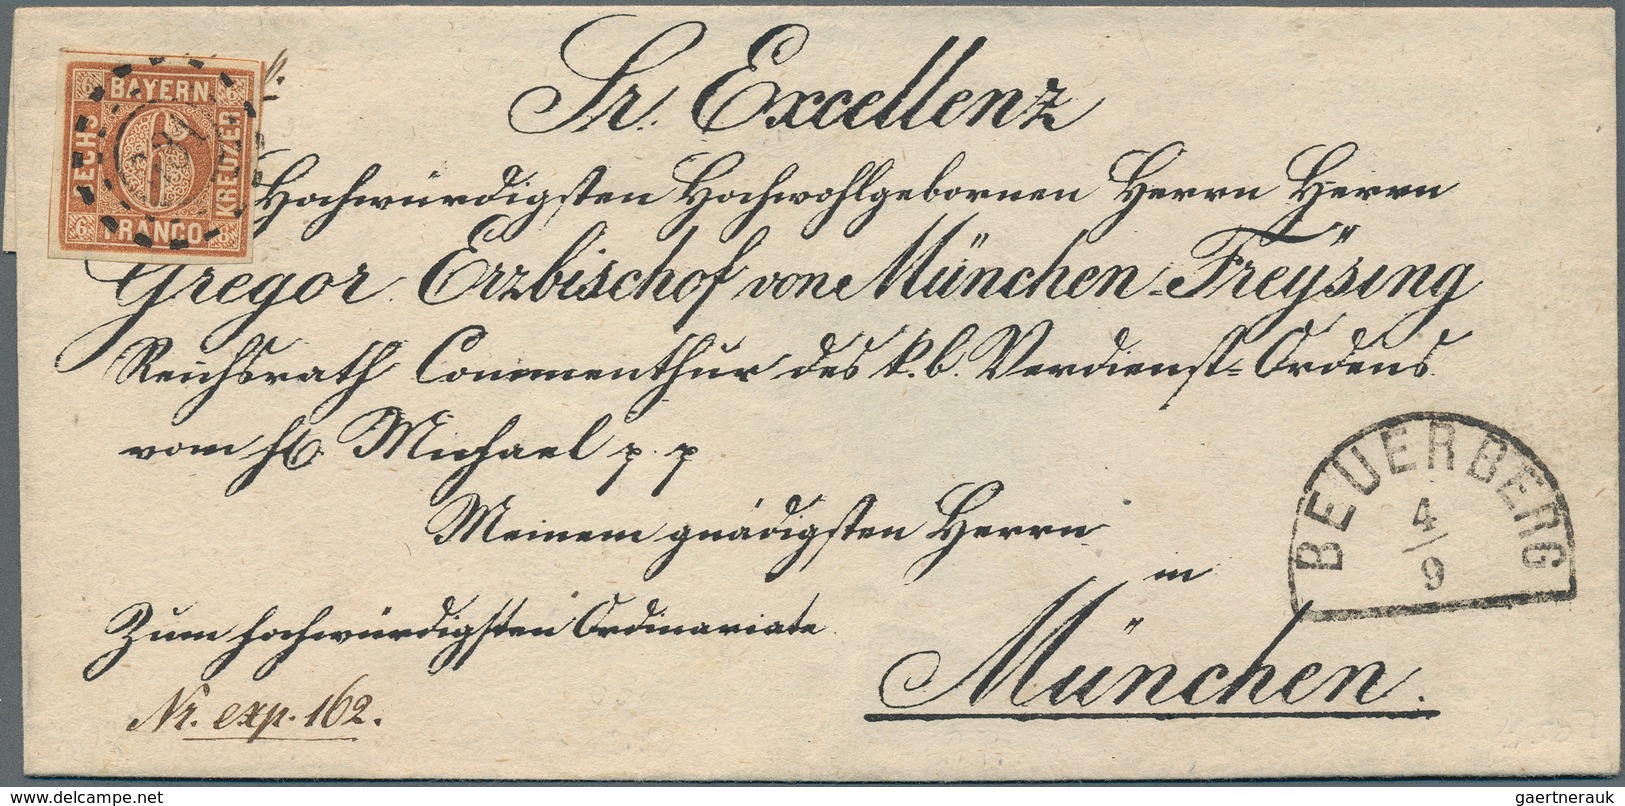 BAYERN
SECHS
KREUZER
FRANCO
6 6 6 6
Sr. Excellenz
Hochwürdigsten Hochwohlgebornen Herrn Herrn
Gregor Erzbischof von München-Freÿsing
Reichsrath Commenthur des k. b. Verdienst-Ordens
vom hl. Michael p. p
Meinem gnädigsten Herrn
in
Zum hochwürdigsten Ordinariate
München.
Nr. exp. 162.
BEUERBERG
4/9
www.delcampe.net
gaertnerauk